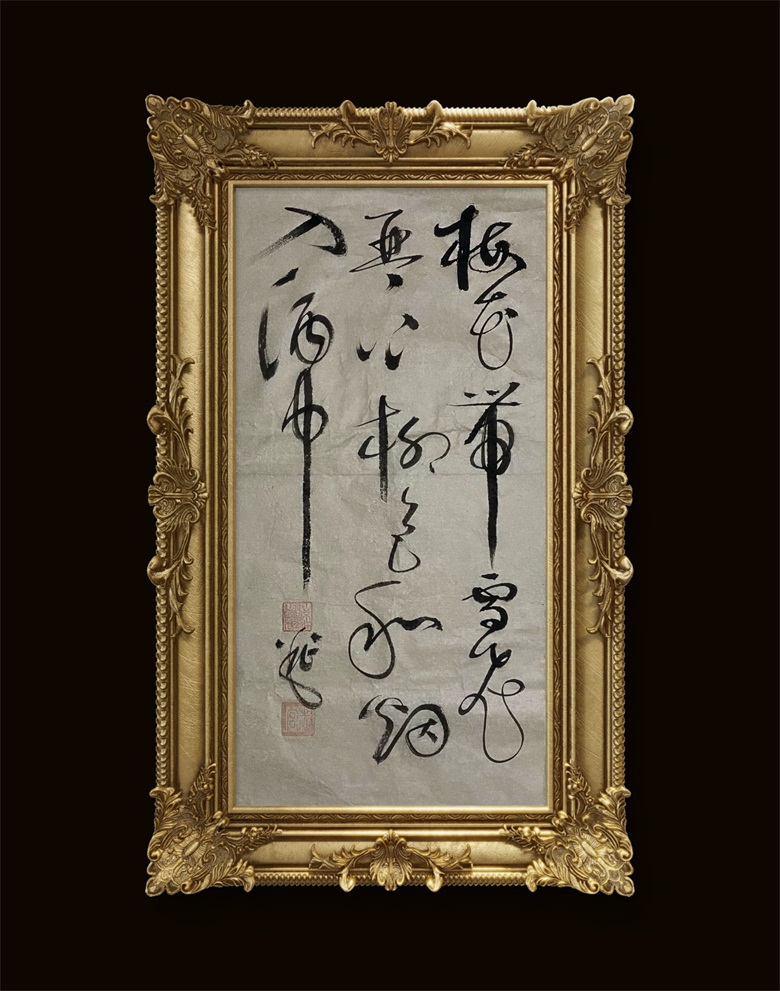 梅花帶雪飛
琴上柳色和烟
入酒中